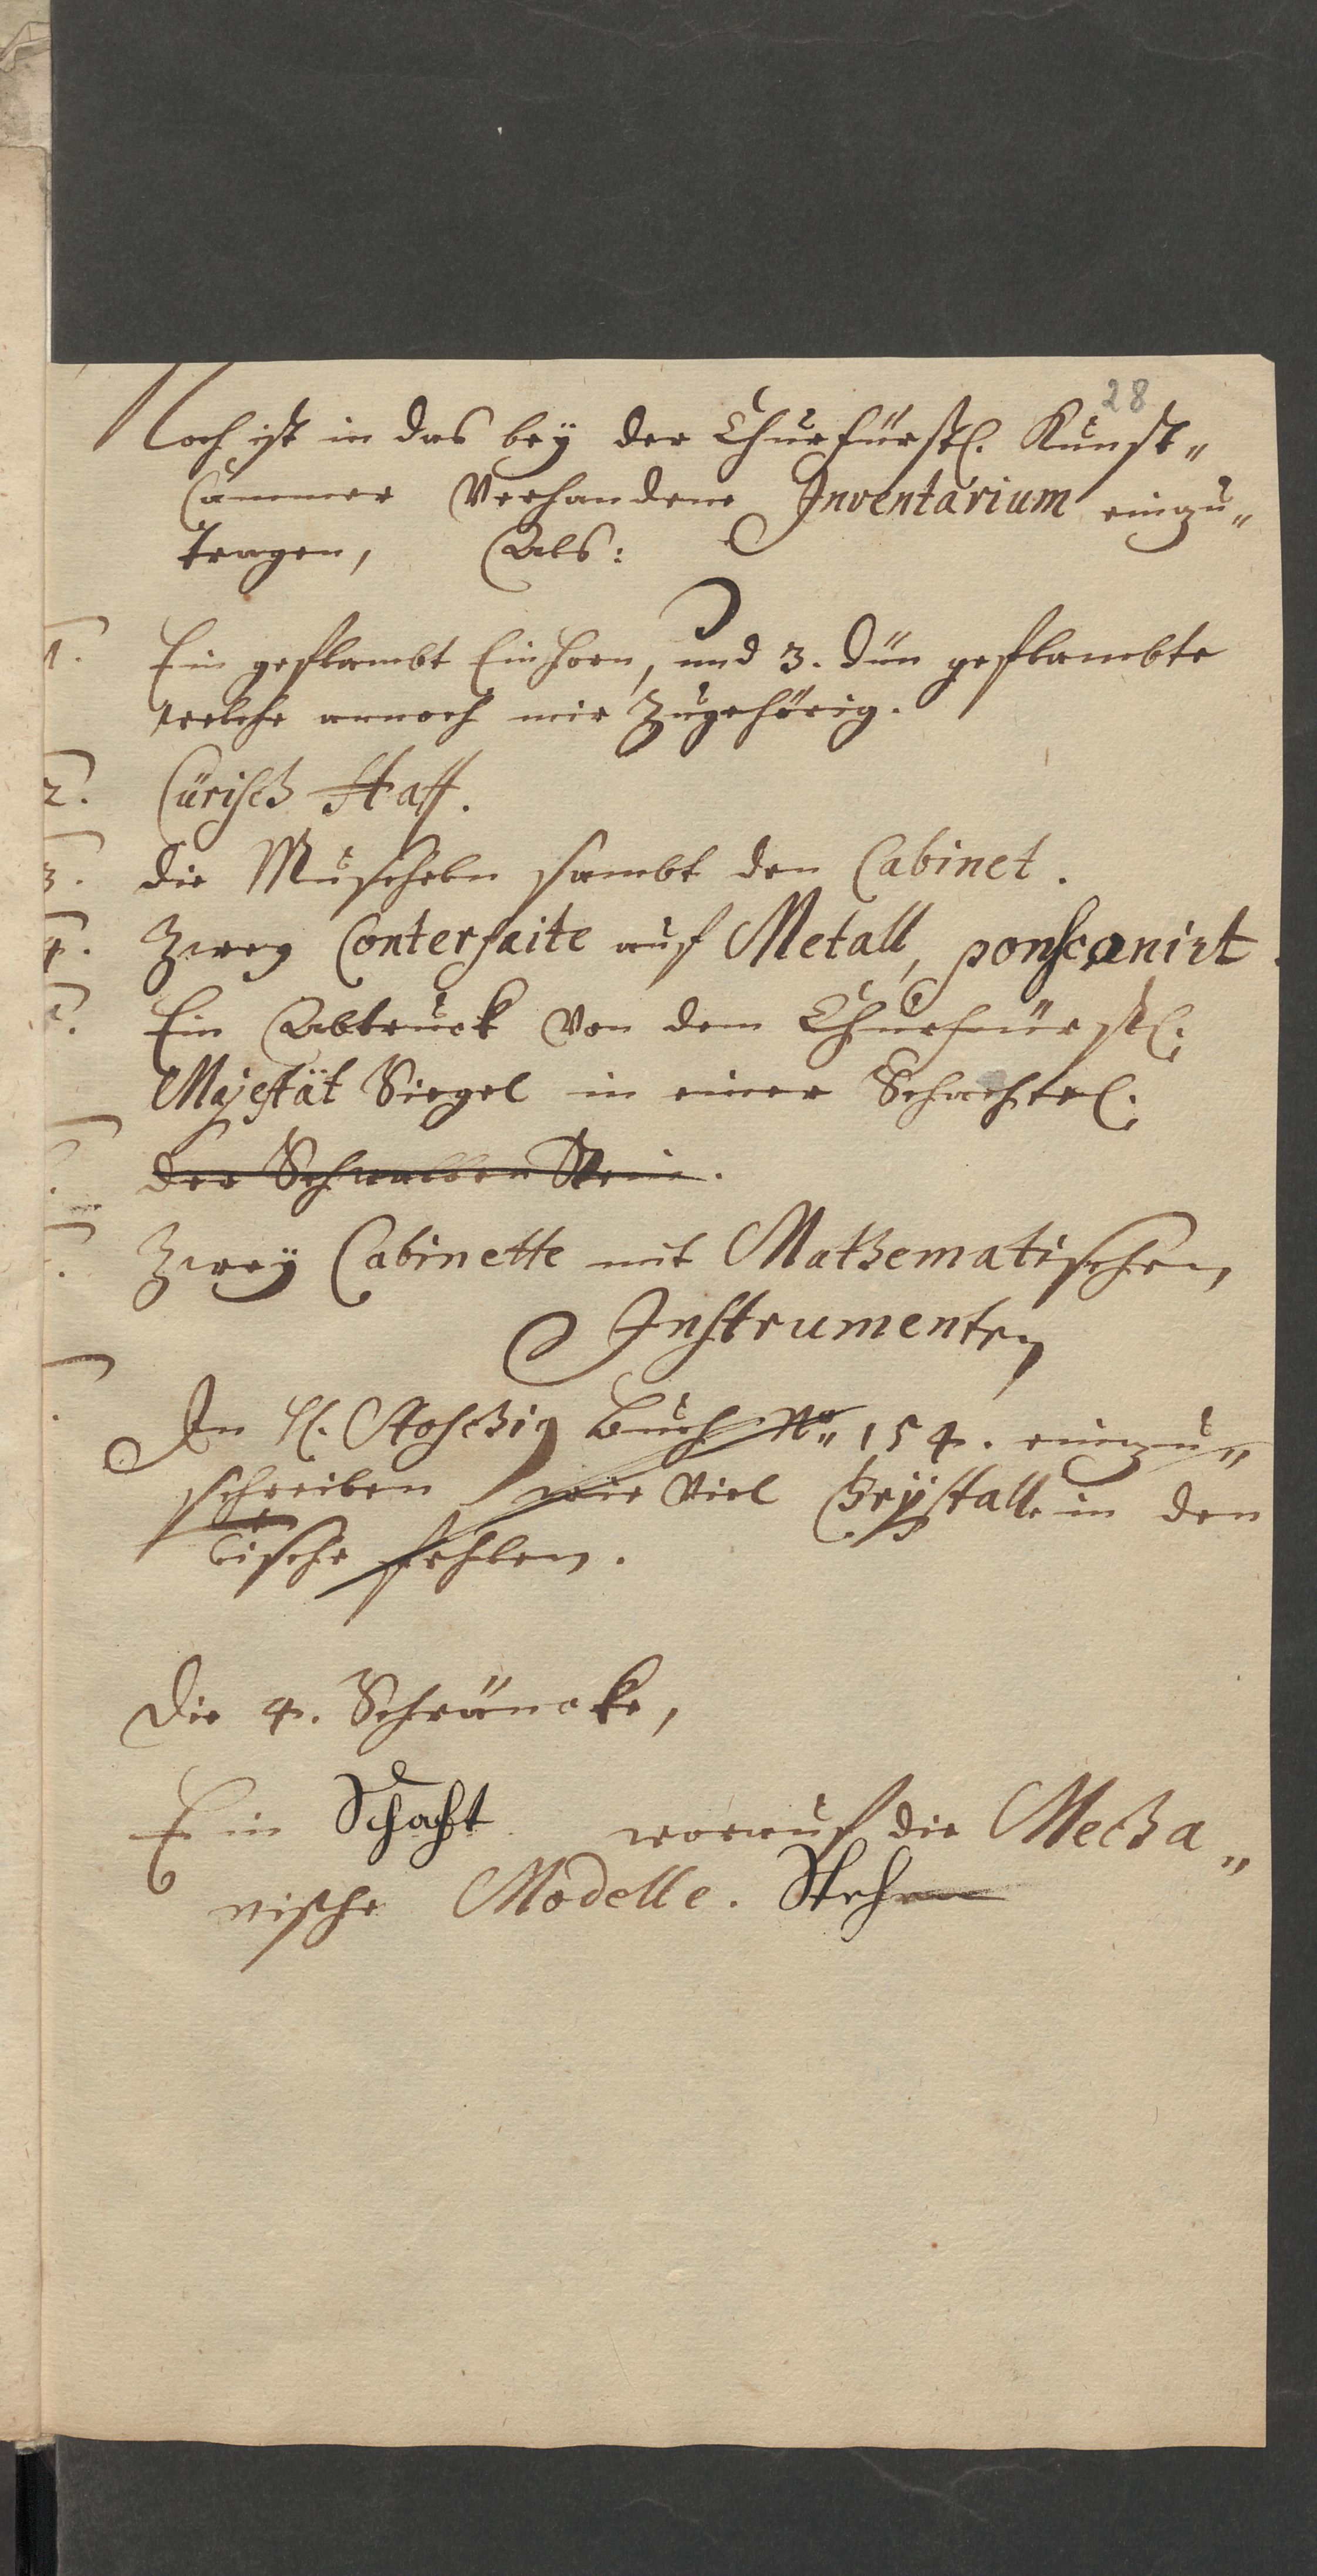 28
Noch ist in das bey der Churfürstl. Kunst„
Cammer Verhandene Inventarium einzu„
tragen, Als:
1. Ein geflambt Einhorn, und 3. dün geflambte
welche annoch mir zugehörig.
2. Cürisch Haff.
3. die Muscheln sambt den Cabinet.
4. Zwey Conterfaite auf Metall,
Ein Abtruck von dem Churfürstl.
Majestät Siegel in einer Schachtel.
der Schwalben Stein.
Zwey Cabinette mit Mathematischen
Instrumenten
In H. Stoschig Buch No 154. einzu„
schreiben wie viel Crystall in den
Tische fehlen.
Die 4. Schräncke,
Ein Schafft worauf die Mecha„
nische Modelle. Stehen